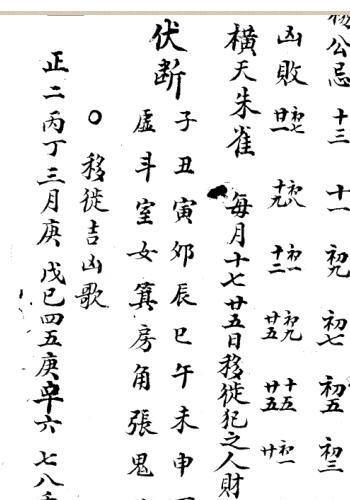 楊公忌 十三 十一 初九 初七 初五 初三
凶敗 初七廿一 初八十九 初一十二 初九廿五 十五廿五 初一廿
橫天朱雀 每月十七廿五日移徙犯之人財
伏断 子丑寅夘辰巳午未申
虛斗室女箕房角張鬼
○移徙吉凶歌
正二丙丁三月庚戊巳四五庚辛六七八